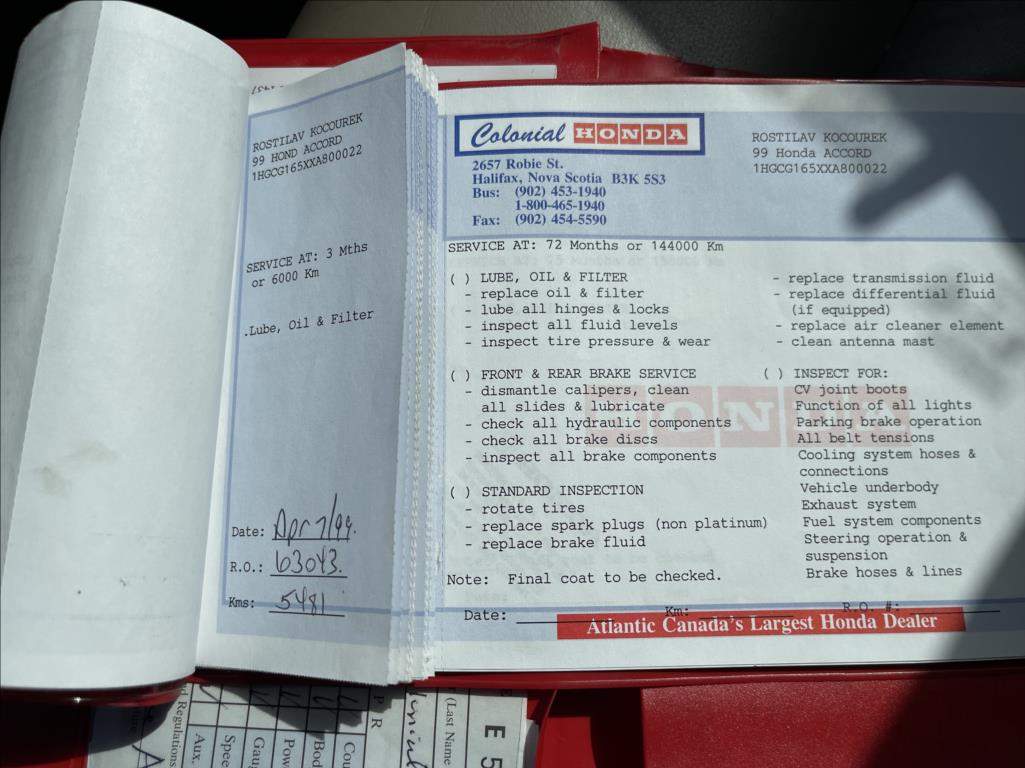 ROSTILAV KOCOUREK
99 HOND ACCORD
1HGCG165XXA800022
SERVICE AT: 3 Mths
or 6000 Km
.Lube, Oil & Filter
Date: Apr 7/99.
R.O.: 63043.
Kms: 5481
Colonial HONDA
2657 Robie St.
Halifax, Nova Scotia B3K 5S3
Bus: (902) 453-1940
1-800-465-1940
Fax: (902) 454-5590
ROSTILAV KOCOUREK
99 Honda ACCORD
1HGCG165XXA800022
SERVICE AT: 72 Months or 144000 Km
( ) LUBE, OIL & FILTER
- replace oil & filter
- lube all hinges & locks
- inspect all fluid levels
- inspect tire pressure & wear
( ) FRONT & REAR BRAKE SERVICE
- dismantle calipers, clean
all slides & lubricate
- check all hydraulic components
- check all brake discs
- inspect all brake components
( ) STANDARD INSPECTION
- rotate tires
- replace spark plugs (non platinum)
- replace brake fluid
- replace transmission fluid
- replace differential fluid
(if equipped)
- replace air cleaner element
- clean antenna mast
( ) INSPECT FOR:
CV joint boots
Function of all lights
Parking brake operation
All belt tensions
Cooling system hoses &
connections
Vehicle underbody
Exhaust system
Fuel system components
Steering operation &
suspension
Brake hoses & lines
Note: Final coat to be checked.
Date: Km: R.O. #:
Atlantic Canada's Largest Honda Dealer
E 5
(Last Name
P R
Cou
Bod
Pow
Gau
Spee
Aux.
d Regulations